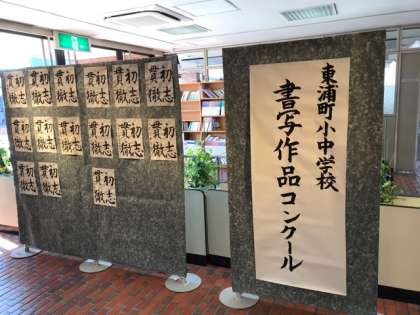 東浦町小中学校
書写作品コンクール
初志
貫徹
初志
貫徹
初志
貫徹
初志
貫徹
初志
貫徹
初志
貫徹
初志
貫徹
初志
貫徹
初志
貫徹
初志
貫徹
初志
貫徹
初志
貫徹
初志
貫徹
初志
貫徹
初志
貫徹